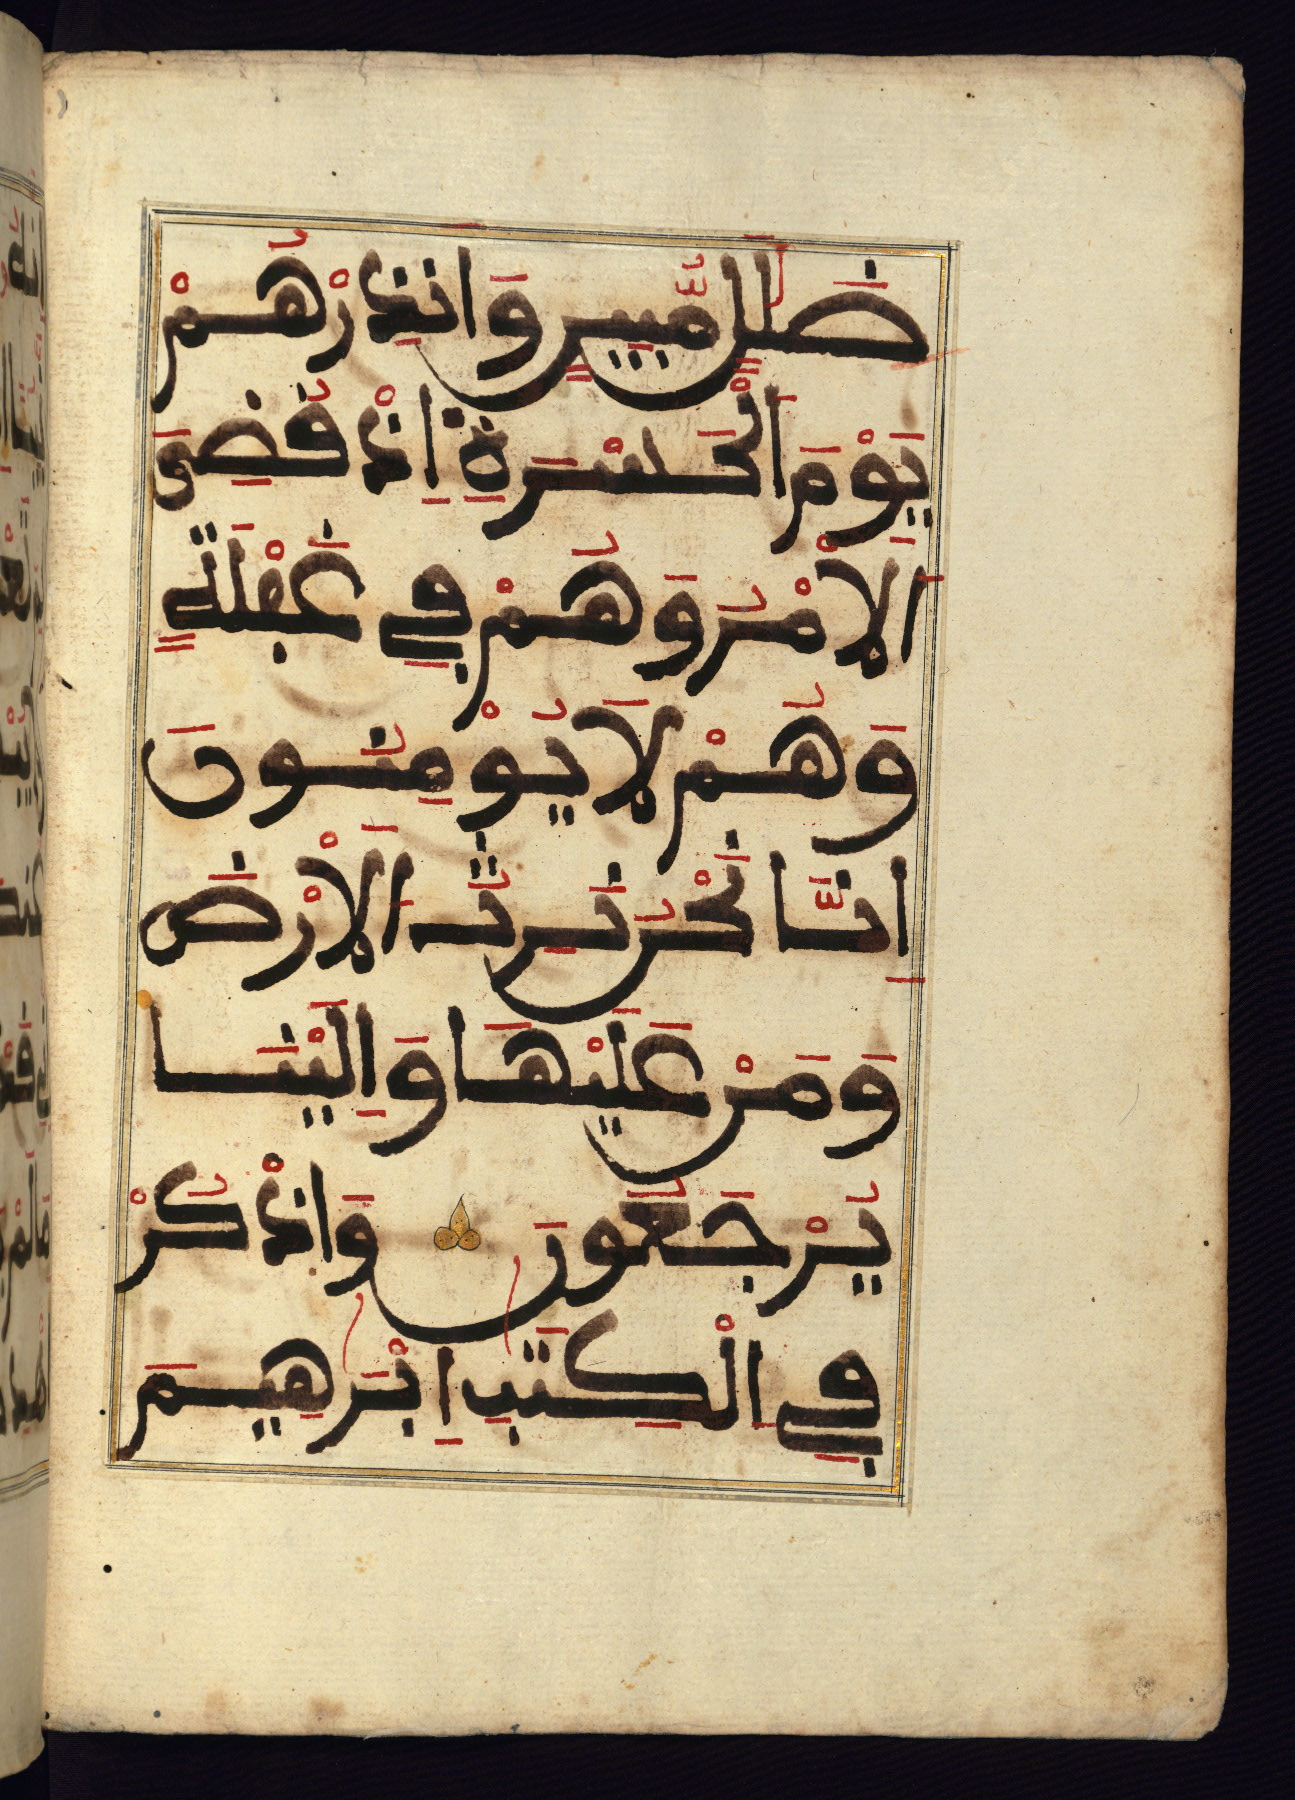 ضَلَٰلٍ مُّبِينٍ وَأَنذِرْهُمْ
يَوْمَ اَ۬لْحَسْرَةِ إِذْ قُضِيَ
اَ۬لَامْرُ وَهُمْ فِي غَفْلَةٍ
وَهُمْ لَا يُومِنُونَ
إِنَّا نَحْنُ نَرِثُ اَ۬لَارْضَ
وَمَنْ عَلَيْهَا وَإِلَيْنَا
يُرْجَعُونَ وَاذْكُرْ
فِي اِ۬لْكِتَٰبِ إِبْرَٰهِيمَ